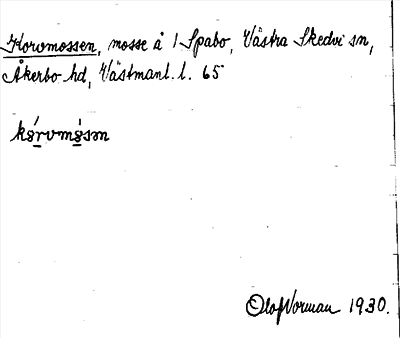 Korvmossen, mosse å 1 Spabo, Västra Skedvi sn,
Åkerbo hd, Västmanl. l. 65
kșrvmșsən
Olof Norman 1930.